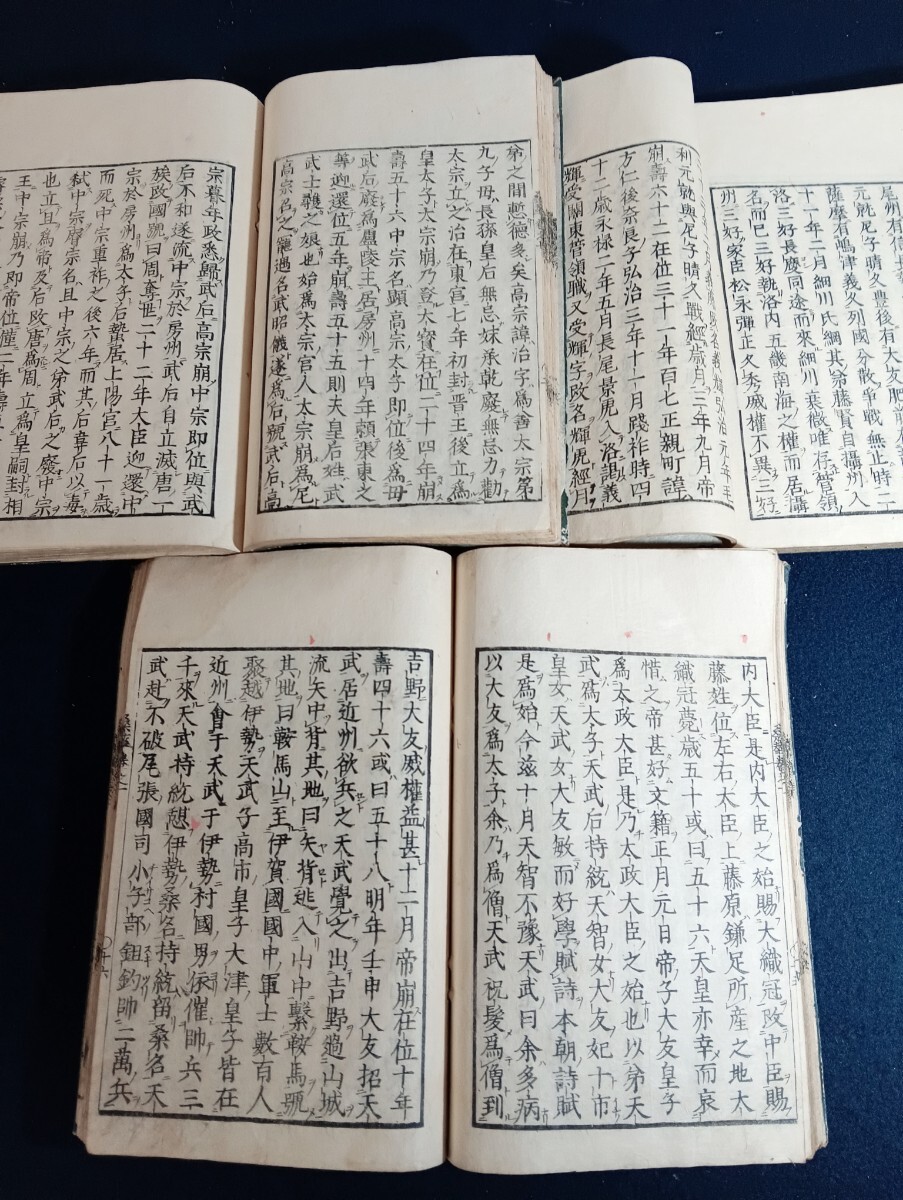 尾州有
元就尼子晴久豊後有大友肥前
薩摩有嶋津義久列國分散争戰無止時二
十一年二月細川氏綱其弟藤賢自攝州入
洛三好長慶同途而來細川衰微唯存管領
名而已三好執洛内五畿南海之權而居攝
州三好家臣松永彈正久秀威權不異三好
利元就與尼子晴久戰經歳月三年九月帝
崩壽六十二在位三十一年百七正親町諱
方仁後奈良子弘治三年十一月踐祚時四
十二歳永禄二年五月長尾景虎入洛謁義
輝受關東管領職又受輝字改名輝虎經月
弟之間慙德多矣高宗諱治字爲善太宗第
九子母長孫皇后無忌妹承乾廢無忌力勸
太宗立之治在東宫七年初封晋王後立爲
皇太子太宗崩乃登大寶在位二十四年崩
壽五十六中宗名顯高宗太子即位後爲母
武后廢爲廬陵王居房州十四年頼張東之
等迎還位五年崩壽五十五則天皇后姓武
武士彠之娘也始爲太宗宫人太宗崩爲尼
高宗名之寵過名武昭儀遂爲后號武后高
宗暮年政悉歸武后高宗崩中宗即位與武
后不和遂流中宗於房州武后自立滅唐一
族政國號曰周奪世二十二年大臣迎還中
宗於房州爲太子后蟄居上陽宫八十一歳
而死中宗重祚之後六年而其后韋后以毒
弑中宗睿宗名旦中宗之弟武后之廢中宗
也立旦爲帝及后改唐爲周立爲皇嗣封相
王中宗崩乃即帝位僅二年
内大臣是内大臣之始賜大織冠改中臣賜
藤姓位左右大臣上藤原鎌足所産之地大
織冠薨歳五十或曰五十六天皇亦幸而哀
惜之帝甚好文籍正月元日帝子大友皇子
爲太政大臣是乃太政大臣之始也以弟天
武爲太子天武后持統天智女大友妃十市
皇女天武女大友敏而好學賦詩本朝詩賦
是爲始今兹十月天智不豫天武曰余多病
以大友爲太子余乃爲僧天武祝髪爲僧到
吉野大友威權益甚十二月帝崩在位十年
壽四十六或曰五十八明年壬申大友招天
武居近州欲兵之天武覺之出吉野過山城
流矢中背其地曰矢背逃入山中繋鞍馬號
其地曰鞍馬山至伊賀國國中軍士數百人
聚越伊勢天武子高市皇子大津皇子皆在
近州會于天武于伊勢村國男依催帥兵三
千來天武持統憩伊勢桑名持統留桑名天
武赴不破尾張國司小子部鉏釣帥二萬兵